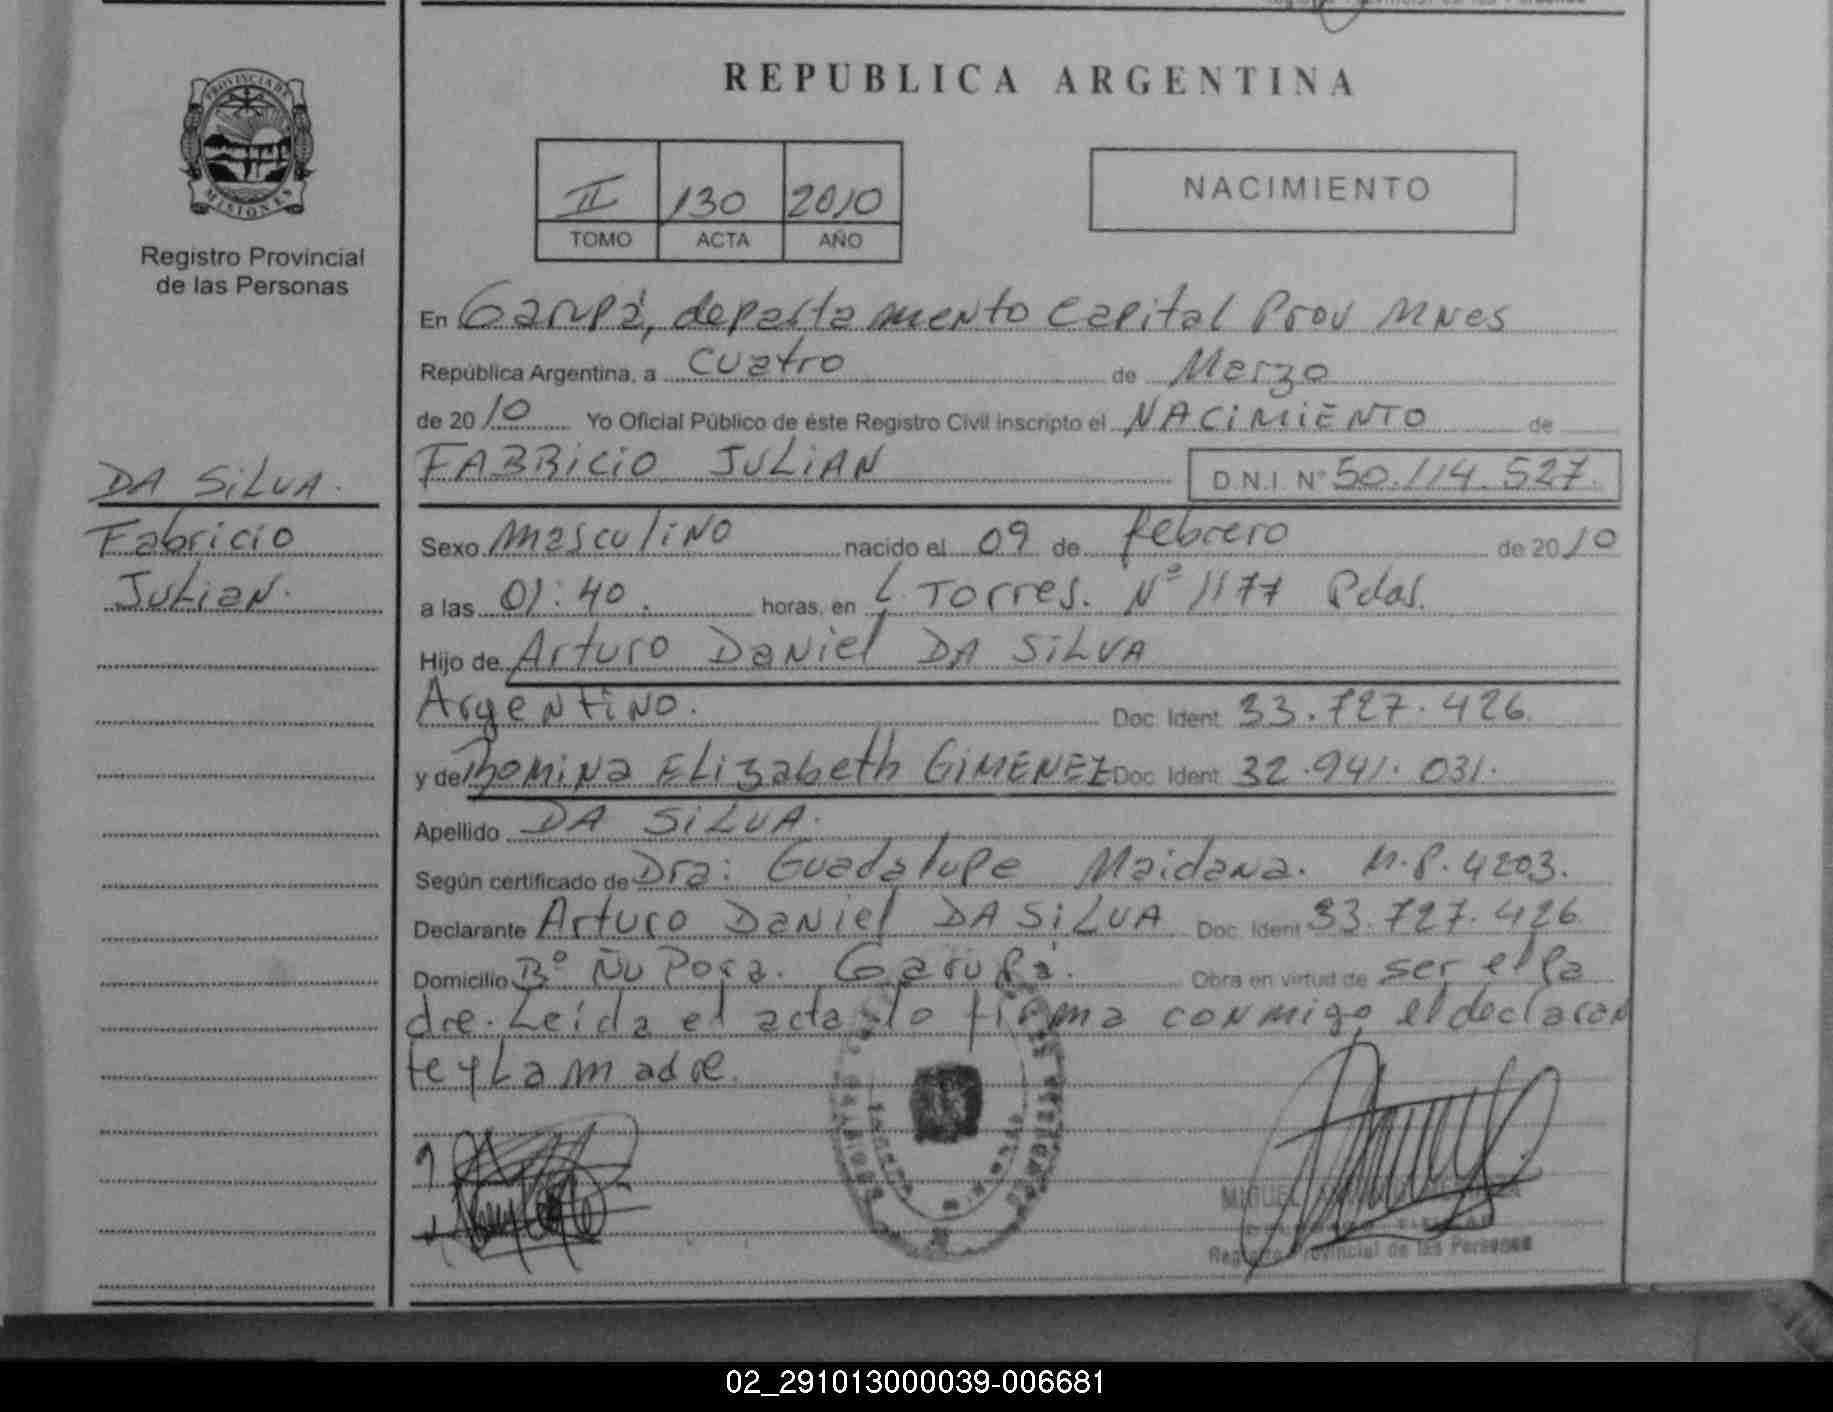 PROVINCIA DE
MISIONES
Registro Provincial
de las Personas
DA SILVA.
Fabricio
Julian.
REPUBLICA ARGENTINA
II 130 2010
TOMO ACTA AÑO
NACIMIENTO
En Garupá, departamento Capital Prov Mnes
República Argentina, a cuatro de Marzo
de 2010 Yo Oficial Público de éste Registro Civil inscripto el NACIMIENTO de
FABRICIO JULIAN D.N.I. N° 50.114.527.
Sexo masculino nacido el 09 de febrero de 2010
a las 01:40. horas, en L. Torres. N° 1177 Pdas.
Hijo de Arturo Daniel DA SILVA
Argentino. Doc. Ident. 33.727.426
y de Romina Elizabeth GIMENEZ Doc. Ident. 32.941.031.
Apellido DA SILVA.
Según certificado de Dra: Guadalupe Maidana. M.P. 4203.
Declarante Arturo Daniel DA SILVA Doc. Ident. 33.727.426
Domicilio B° Ñu Pora. Garupá. Obra en virtud de ser el pa
dre. Leída el acta lo firma conmigo el declaran
te y La madre.
MIGUEL
Registro Provincial de las Personas
02_291013000039-006681